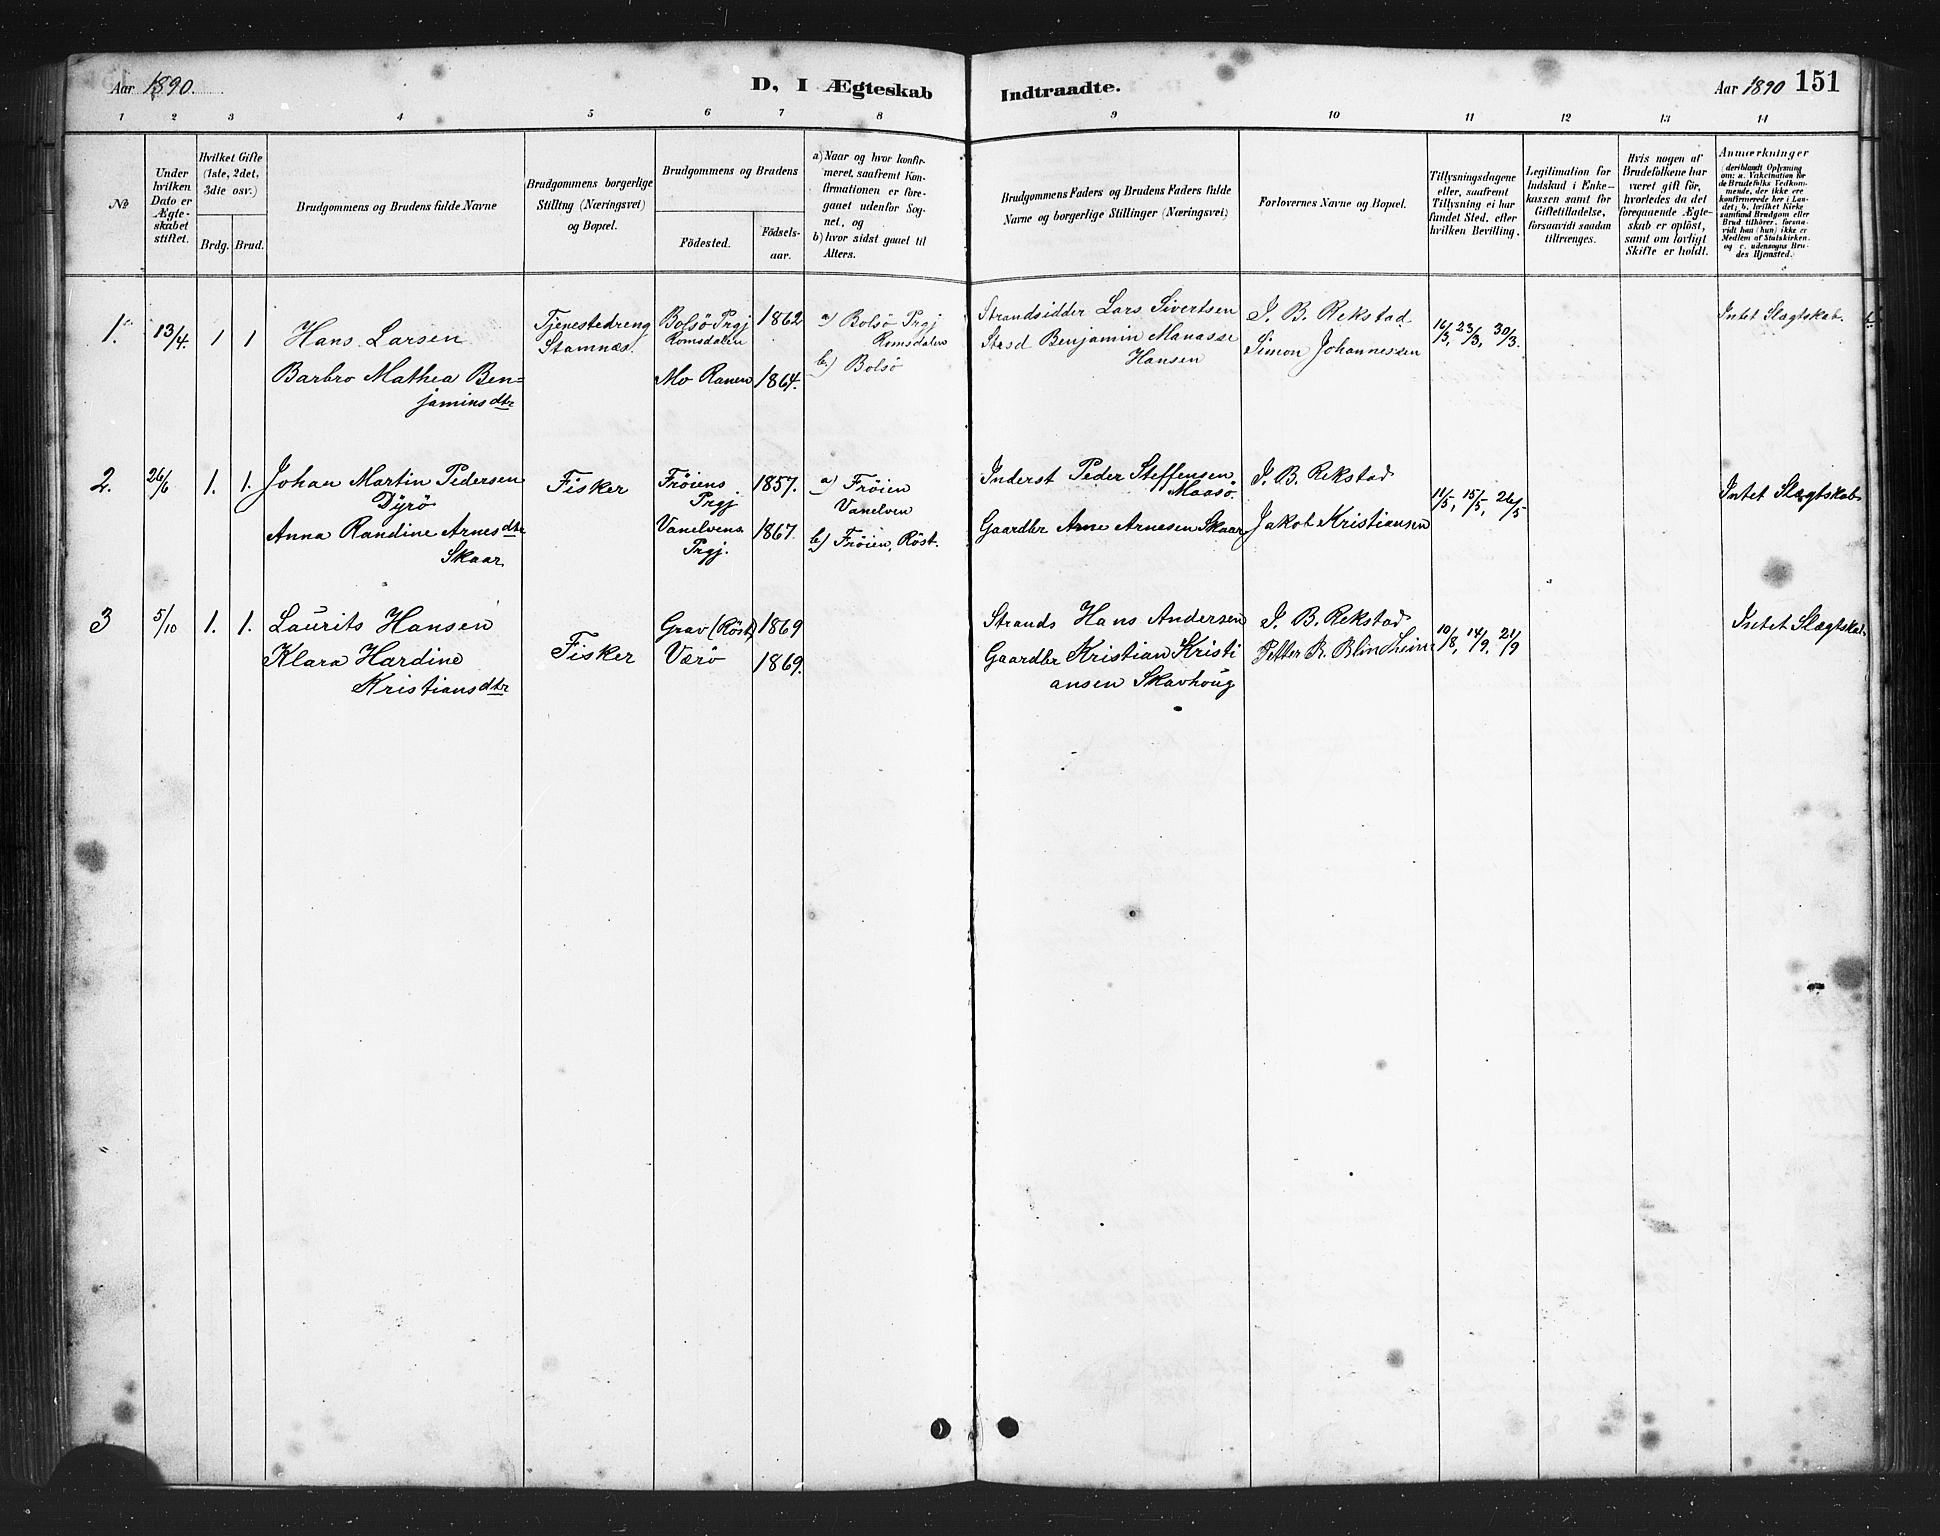 Aar 1890.
D, I Ægteskab Indtraadte.
Aar 1890 151
1 2 3 4 5 6 7 8 9 10 11 12 13 14
No
Under hvilken Dato er Ægte-skabet stiftet.
Hvilket Gifte (1ste, 2det, 3die osv.)
Brdg. Brud.
Brudgommens og Brudens fulde Navne
Brudgommens borgerlige Stilling (Næringsvei) og Bopæl.
Brudgommens og Brudens
Fødested. Fødsels-aar.
a) Naar og hvor konfir-meret, saafremt Kon-firmationen er fore-gaaet udenfor Sog-net, og
b) hvor sidst gaaet til Alters.
Brudgommens Faders og Brudens Faders fulde Navne og borgerlige Stillinger (Næringsvei)
Forlovernes Navne og Bopæl.
Tillysningsdagene eller, saafremt Tillysning ei har fundet Sted, efter hvilken Bevilling.
Legitimation for Indskud i Enke-kassen samt for Giftetilladelse, forsaavidt saadan tiltrænges.
Hvis nogen af Brudefolkene har været gift før, hvorledes da det foregaaende Ægte-skab er opløst, samt om lovligt Skifte er holdt.
Anmærkninger (deriblandt Oplysning om: a. Vakcination for de Brudefolks Vedkom-mende, der ikke ere konfirmerede her i Lan-det; b. hvilket Kirke samfund Brudgom eller Brud tilhører, forsaa-vidt han (hun) ikke er Medlem af Statskirken. og c. udensogns Bru-des Hjemsted.)
1. 13/4. 1 1 Hans Larsen
Barbro Mathea Ben=
jaminsdtr
Tjenestedreng
Stamnæs.
Bolsö Prgj 1862
Romsdalen
Mo Ranen 1864.
a) Bolsö Prgj
Romsdalen
b.) Bolsö
Strandsidder Lars Sivertsen
Strsd Benjamin Manasse
Hansen
J. B. Rekstad
Simon Johannessen
16/3, 23/3, 30/3.
Intet Slægtskab.
2. 26/6 1. 1. Johan Martin Pedersen
Dÿrö
Anna Randine Arnesdtr
Skaar
Fisker
Fröiens 1857.
Prgj
Vanelvens 1867.
Prgj.
a) Fröien
Vanelven
b) Fröien, Röst.
Inderst Peder Steffensen
Maasö.
Gaardbr Arne Arnesen Skaar
J. B. Rekstad
Jakob Kristiansen
11/5, 15/5, 26/5
Intet Slægtskab
3 5/10 1. 1. Laurits Hansen
Klara Hardine
Kristiansdtr
Fisker
Grav (Röst) 1869
Værö 1869.
Strands Hans Andersen
Gaardbr Kristian Kristi
ansen Skavhoug
J. B. Rekstad
Petter R. Blindheim
10/8, 14/9, 21/9
Intet Slægtskab